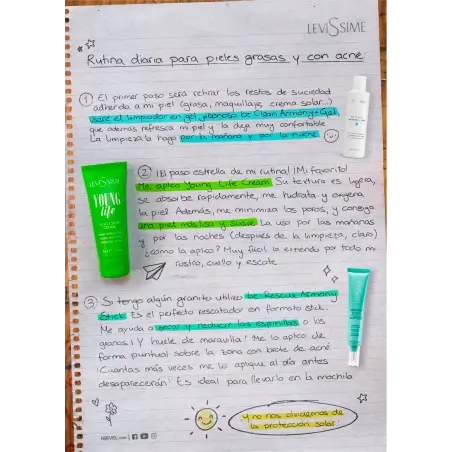 LEVISSIME
Rutina diaria para pieles grasas y con acné
1 El primer paso será retirar los restos de suciedad
adherida a mi piel (grasa, maquillaje, crema solar...)
usaré el limpiador en gel jabonoso be Clean Armony+Gel,
que además refresca mi piel y la deja muy confortable
La limpieza la hago por la mañana y por la noche
LEVISSIME
YOUNG
life
2 ¡El paso estrella de mi rutina! ¡Mi favorito!
Me aplico Young Life Cream. Su textura es ligera,
se absorbe rapidamente, me hidrata y oxigena
la piel Además, me minimiza los poros, y consigo
una piel más lisa y suave La uso por las mañanas
y por las noches (después de la limpieza, claro)
¿cómo la aplico? Muy fácil la extiendo por todo mi
rostro, cuello y escote
3 Si tengo algún granito utilizo be Rescue Armony
Stick. Es el perfecto rescatador en formato stick.
Me ayuda a secar y reducir las espinillas o los
granos! Y huele de maravilla! Me lo aplico de
forma puntual sobre la zona con brote de acné
¡Cuantas más veces me lo aplique al día antes
desaparecerán! Es ideal para llevarlo en la mochila
y no nos olvidemos de
la protección solar!